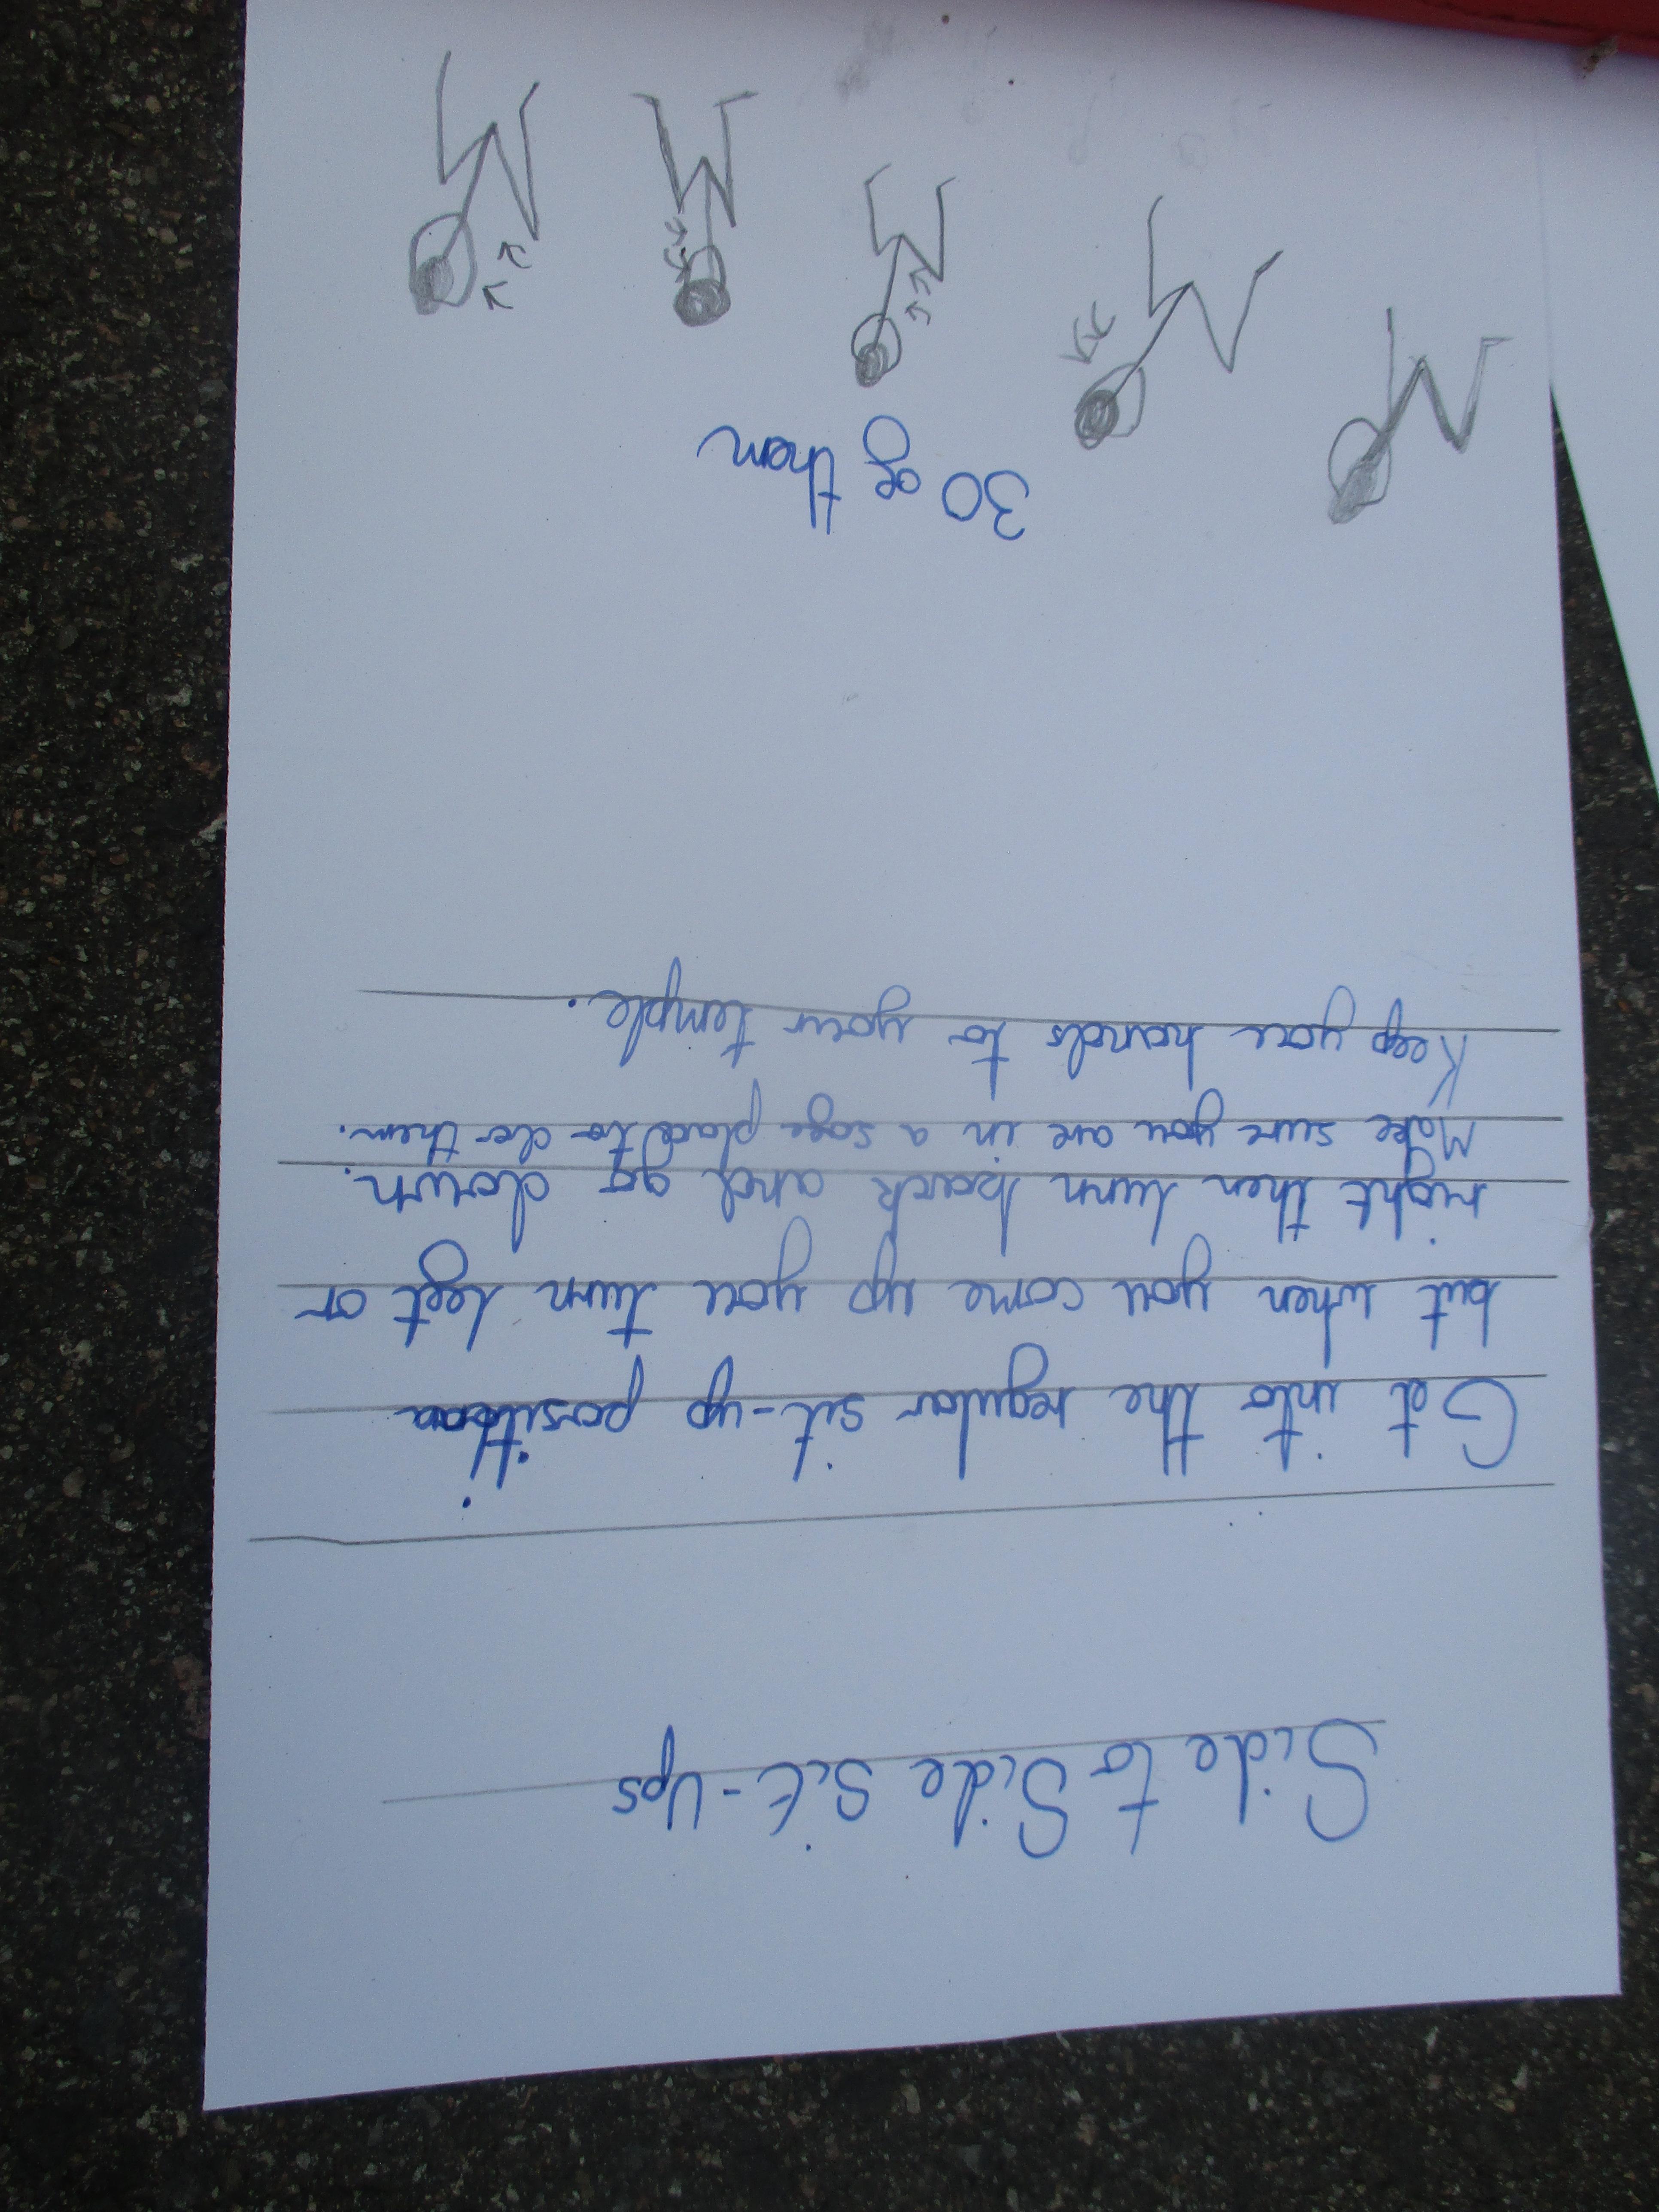 Side to Side Sit-Ups
Get into the regular sit-up position
but when you come up you turn left or
right then turn back and go down.
Make sure you are in a safe place to do them.
Keep you hands to your temple.
30 of them